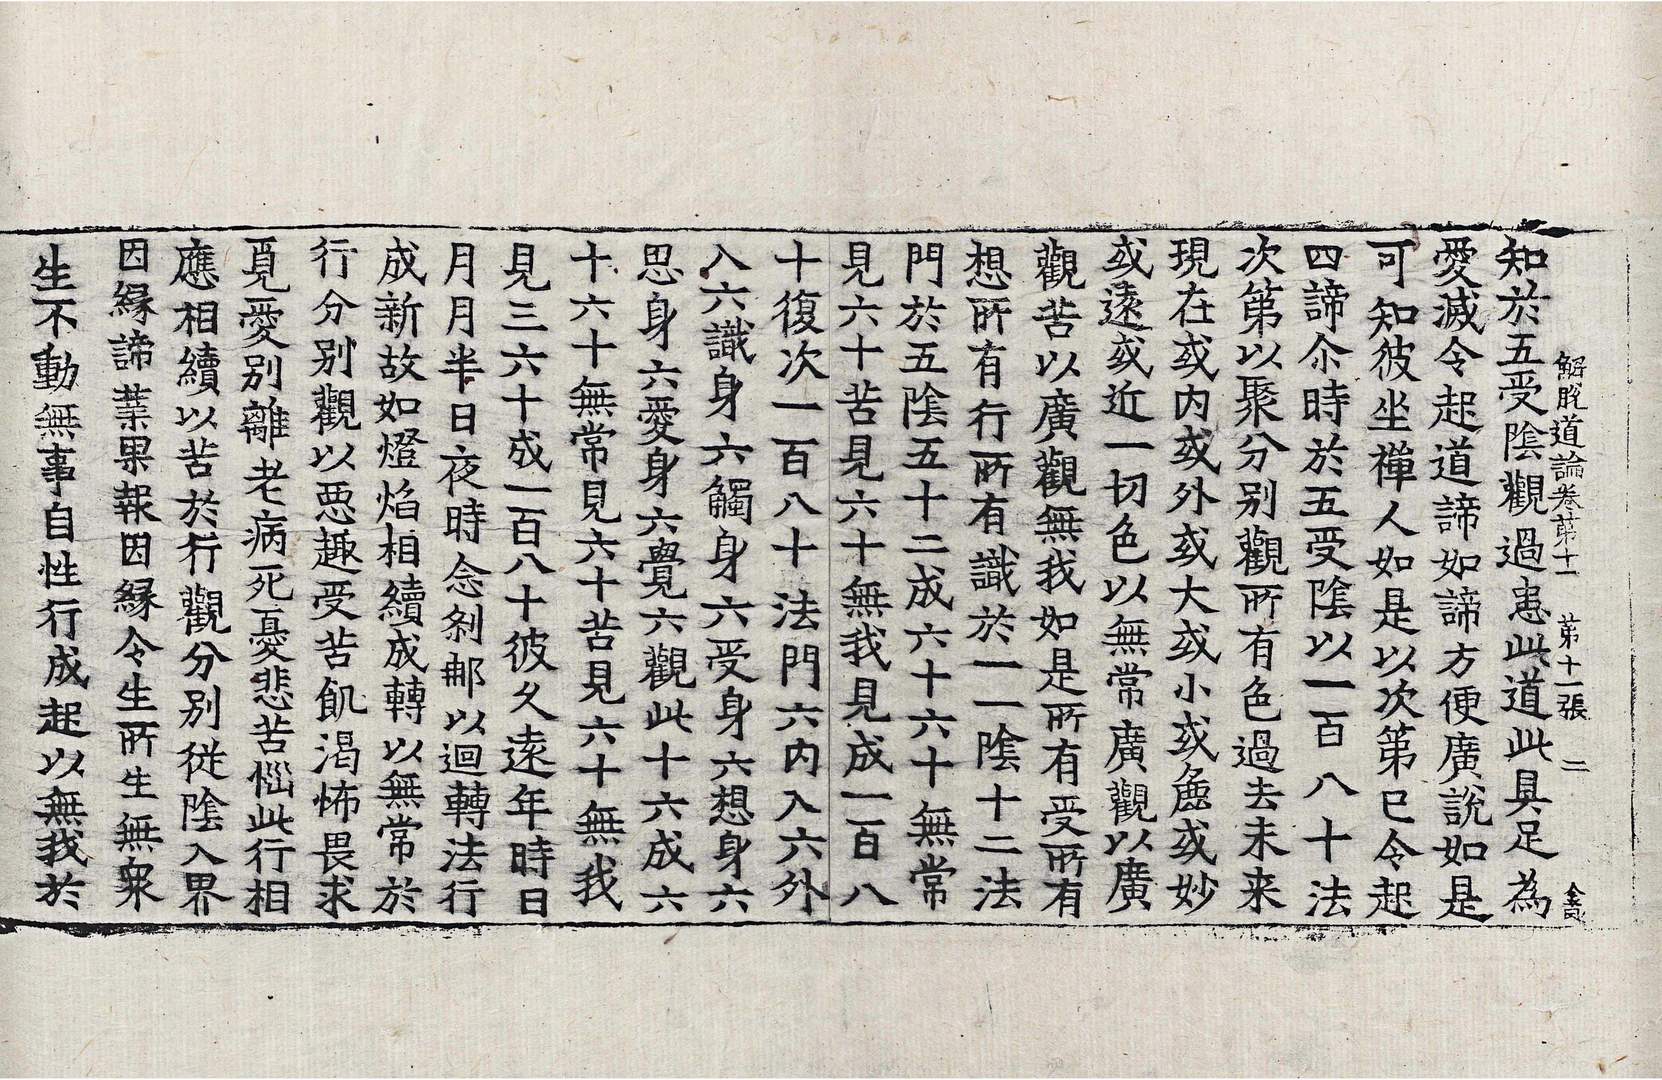 解脫道論卷第十一　第十一張　二
知於五受陰觀過患此道此具足為
愛滅令起道諦如諦方便廣說如是
可知彼坐禪人如是以次第已令起
四諦尒時於五受陰以一百八十法
次第以聚分别觀所有色過去未来
現在或内或外或大或小或麁或妙
或遠或近一切色以無常廣觀以廣
觀苦以廣觀無我如是所有受所有
想所有行所有識於一一陰十二法
門於五陰五十二成六十六十無常
見六十苦見六十無我見成一百八
十復次一百八十法門六内入六外
入六識身六觸身六受身六想身六
思身六愛身六覺六觀此十六成六
十六十無常見六十苦見六十無我
見三六十成一百八十彼久遠年時日
月月半日夜時念剎那以迴轉法行
成新故如燈焰相續成轉以無常於
行分别觀以惡趣受苦飢渴怖畏求
覓愛别離老病死憂悲苦惱此行相
應相續以苦於行觀分别從陰入界
因縁諦業果報因縁令生所生無衆
生不動無事自性行成起以無我於